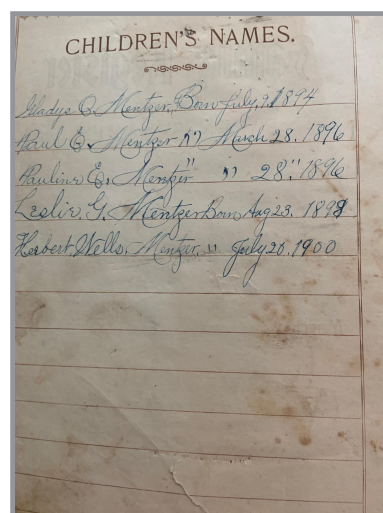 CHILDREN'S NAMES.
Gladys C. Mentzer, Born July, 9, 1894
Paul E. Mentzer " March 28, 1896
Pauline E. Mentzer " " 28" 1896
Leslie, G. Mentzer Born Aug 23, 1898
Herbert, Wells, Mentzer, " July 20, 1900